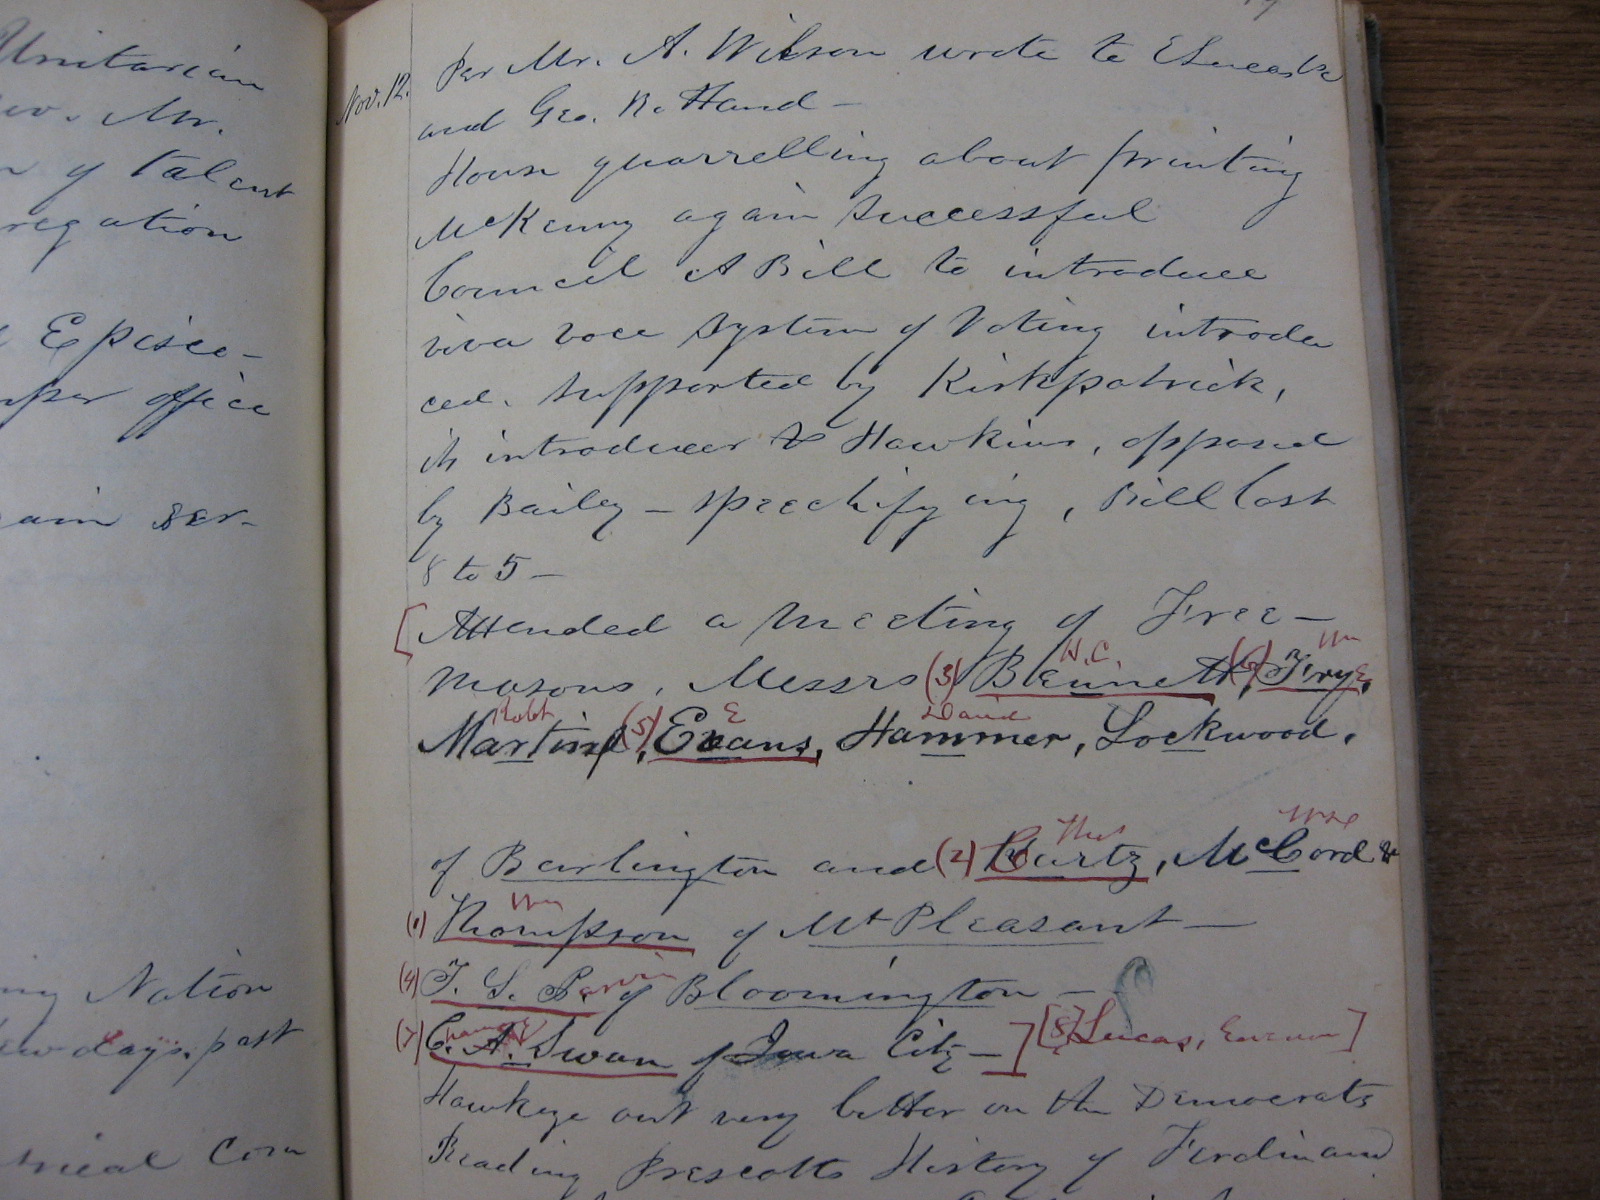 Unitarian
Mr.
of talent
regation
Episco-
office
ain ser-
Nation
days. past
rical Com
Nov. 12. Per Mr. A. Wilson wrote to
and Geo. B. Hand —
House quarrelling about printing
McKenny again successful
Council A Bill to introduce
viva voce system of Voting introdu
ced. supported by Kirkpatrick,
its introducer & Hawkins, opposed
by Bailey — speechifying, Bill lost
8 to 5 —
[Attended a meeting of Free-
H.C Wm
masons, Messrs (3) Bennett, (6) Frye,
Robt E David
Martin, (5) Evans, Hammer, Lockwood,
Thos
of Burlington and (2) Kurtz, McCord &
Wm
(1) Thompson of Mt Pleasant —
(4) T. S. Parvin of Bloomington —
(7) C. A. Swan of Iowa City —] [(8) Lucas,
Hawkeye out very bitter on the Democrats
Reading Prescotts History of Ferdinand